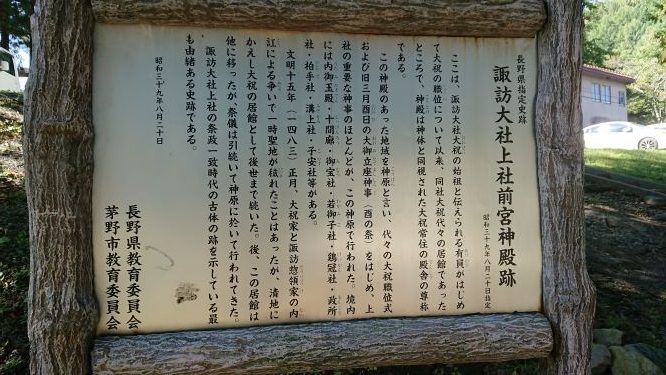 長野県指定史跡
諏訪大社上社前宮神殿跡
昭和三十九年八月二十日指定
ここは、諏訪大社大祝の始祖と伝えられる有員がはじめ
て大祝の職位について以来、同社大祝代々の居館であった
ところで、神殿は神体と同視された大祝常住の殿舎の尊称
である。
この神殿のあった地域を神原と言い、代々の大祝職位式
および旧三月酉日の大御立座神事（酉の祭）をはじめ、上
社の重要な神事のほとんどが、この神原で行われた。境内
には内御玉殿・十間廊・御宝社・若御子社・鶏冠社・政所
社・柏手社・溝上社・子安社等がある。
文明十五年（一四八三）正月、大祝家と諏訪惣領家の内
訌による争いで一時聖地が穢れたことはあったが、清地に
かえし大祝の居館として後世まで続いた。後、この居館は
他に移ったが、祭儀は引続いて神原に於いて行われてきた。
諏訪大社上社の祭政一致時代の古体の跡を示している最
も由緒ある史跡である。
昭和三十九年八月二十日
長野県教育委員会
茅野市教育委員会